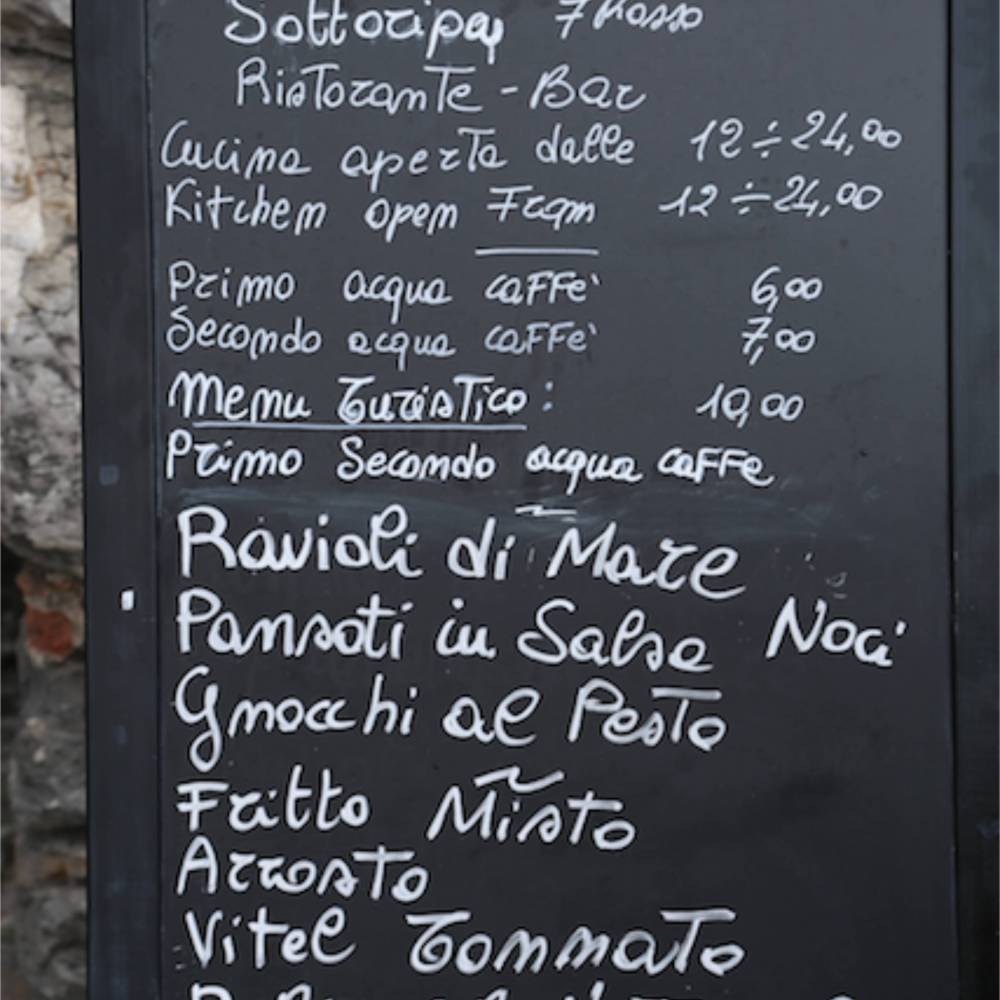 Sottoripa 7 Rosso
Ristorante - Bar
Cucina aperta dalle 12÷24,00
Kitchen open From 12÷24,00
Primo acqua caffe' 6,00
Secondo acqua caffe' 7,00
Menu Turistico: 10,00
Primo Secondo acqua caffe
Ravioli di Mare
Pansoti in Salsa Noci
Gnocchi al Pesto
Fritto Misto
Arrosto
Vitel Tonnato